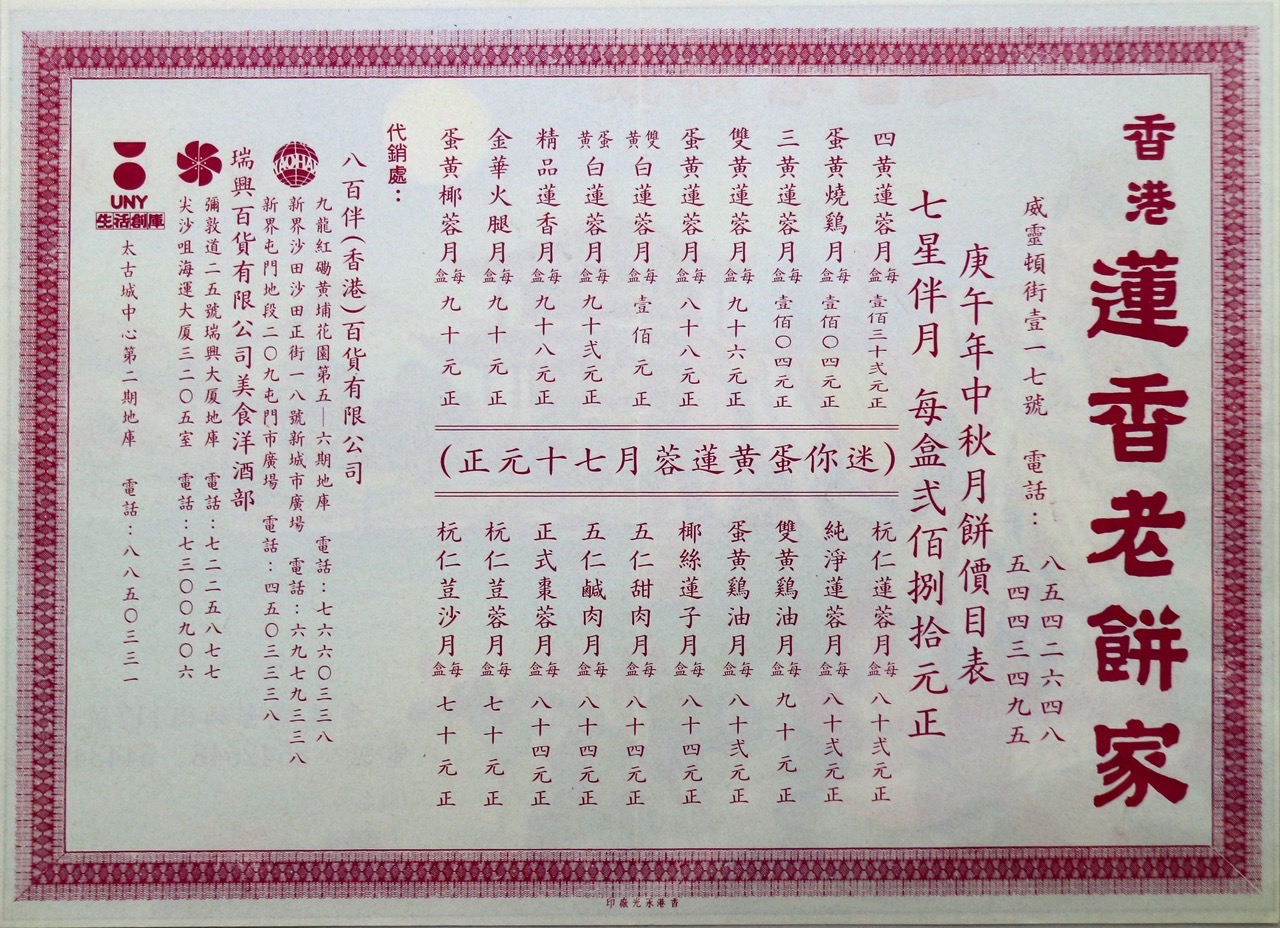 香港蓮香老餅家
威靈頓街壹一七號 電話：
八五四二六四八
五四四三四九五
庚午年中秋月餅價目表
七星伴月 每盒弍佰捌拾元正
四黃蓮蓉月每盒壹佰三十弍元正
蛋黃燒鷄月每盒壹佰〇四元正
三黃蓮蓉月每盒壹佰〇四元正
雙黃蓮蓉月每盒九十六元正
蛋黃蓮蓉月每盒八十八元正
雙黃白蓮蓉月每盒壹佰元正
蛋黃白蓮蓉月每盒九十弍元正
精品蓮香月每盒九十八元正
金華火腿月每盒九十元正
蛋黃椰蓉月每盒九十元正
(迷你蛋黃蓮蓉月七十元正)
杬仁蓮蓉月每盒八十弍元正
純淨蓮蓉月每盒八十弍元正
雙黃鷄油月每盒九十元正
蛋黃鷄油月每盒八十弍元正
椰絲蓮子月每盒八十四元正
五仁甜肉月每盒八十四元正
五仁鹹肉月每盒八十四元正
正式棗蓉月每盒八十四元正
杬仁荳蓉月每盒七十元正
杬仁荳沙月每盒七十元正
代銷處：
八百伴(香港)百貨有限公司
YAOHAN
九龍紅磡黃埔花園第五—六期地庫 電話：七六六〇三三八
新界沙田沙田正街一八號新城市廣場 電話：六九七九三三八
新界屯門地段二〇九屯門市廣場 電話：四五〇三三三八
瑞興百貨有限公司美食洋酒部
彌敦道二五號瑞興大厦地庫 電話：七二二五八七七
尖沙咀海運大厦三二〇五室 電話：七三〇〇九〇六
UNY
生活創庫
太古城中心第二期地庫 電話：八八五〇三三一
香港永光廠印